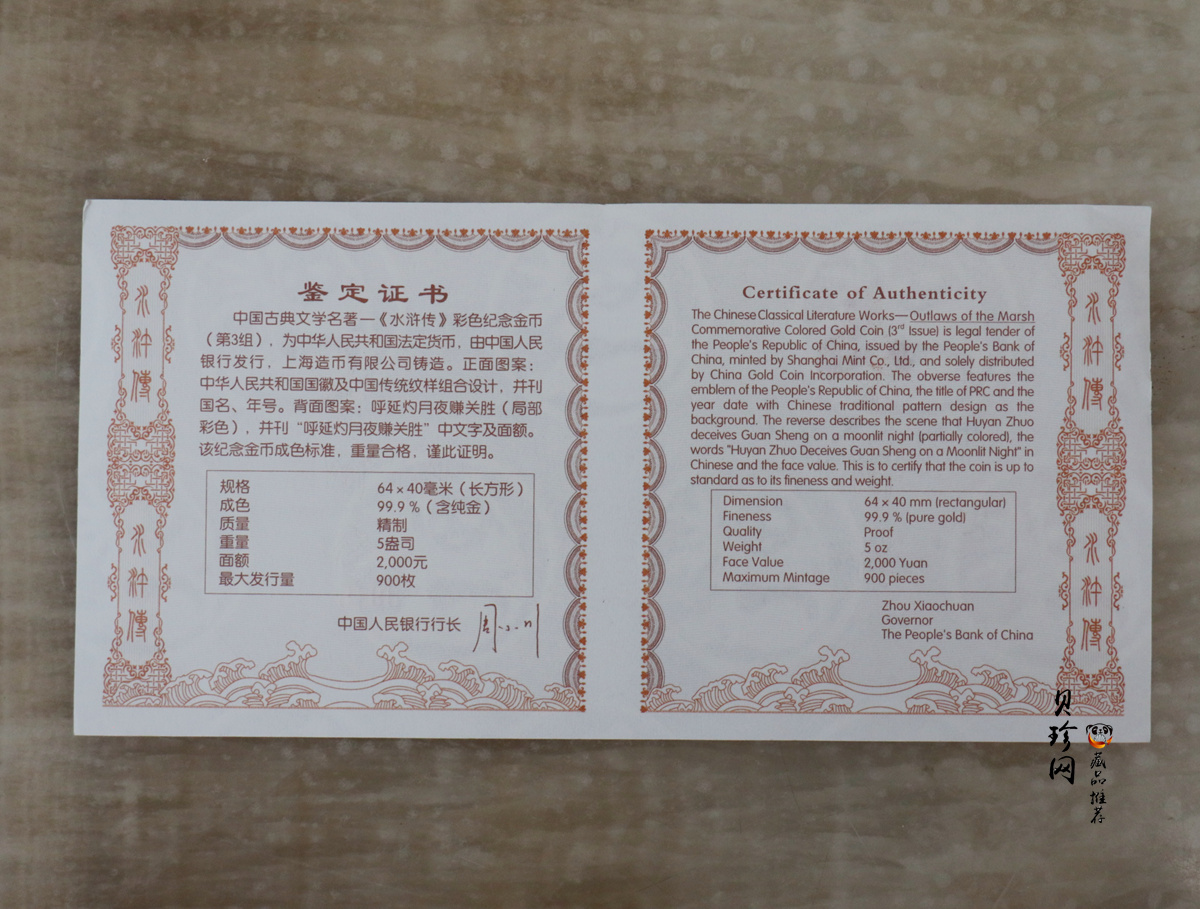 鉴定证书
中国古典文学名著—《水浒传》彩色纪念金币
（第3组），为中华人民共和国法定货币，由中国人民
银行发行，上海造币有限公司铸造。正面图案：
中华人民共和国国徽及中国传统纹样组合设计，并刊
国名、年号。背面图案：呼延灼月夜赚关胜（局部
彩色），并刊“呼延灼月夜赚关胜”中文字及面额。
该纪念金币成色标准，重量合格，谨此证明。
规格 64×40毫米（长方形）
成色 99.9％（含纯金）
质量 精制
重量 5盎司
面额 2,000元
最大发行量 900枚
中国人民银行行长 周小川
水浒傳
水浒傳
Certificate of Authenticity
The Chinese Classical Literature Works—Outlaws of the Marsh
Commemorative Colored Gold Coin (3rd Issue) is legal tender of
the People's Republic of China, issued by the People's Bank of
China, minted by Shanghai Mint Co., Ltd., and solely distributed
by China Gold Coin Incorporation. The obverse features the
emblem of the People's Republic of China, the title of PRC and the
year date with Chinese traditional pattern design as the
background. The reverse describes the scene that Huyan Zhuo
deceives Guan Sheng on a moonlit night (partially colored), the
words "Huyan Zhuo Deceives Guan Sheng on a Moonlit Night" in
Chinese and the face value. This is to certify that the coin is up to
standard as to its fineness and weight.
Dimension 64×40 mm (rectangular)
Fineness 99.9 % (pure gold)
Quality Proof
Weight 5 oz
Face Value 2,000 Yuan
Maximum Mintage 900 pieces
Zhou Xiaochuan
Governor
The People's Bank of China
水浒傳
水浒傳
贝珍网
藏品推荐